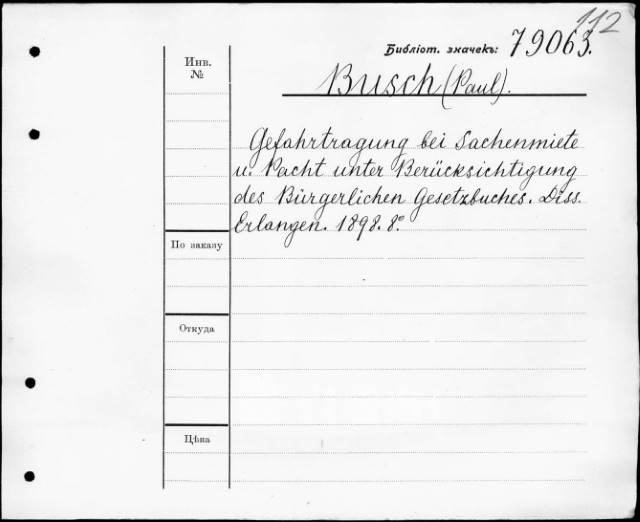 112
Библіот. значекъ: 79063.
Инв. №
Busch (Paul).
Gefahrtragung bei Sachenmiete
u. Pacht unter Berücksichtigung
des Bürgerlichen Gesetzbuches. Diss.
Erlangen. 1898. 8°
По заказу
Откуда
Цѣна